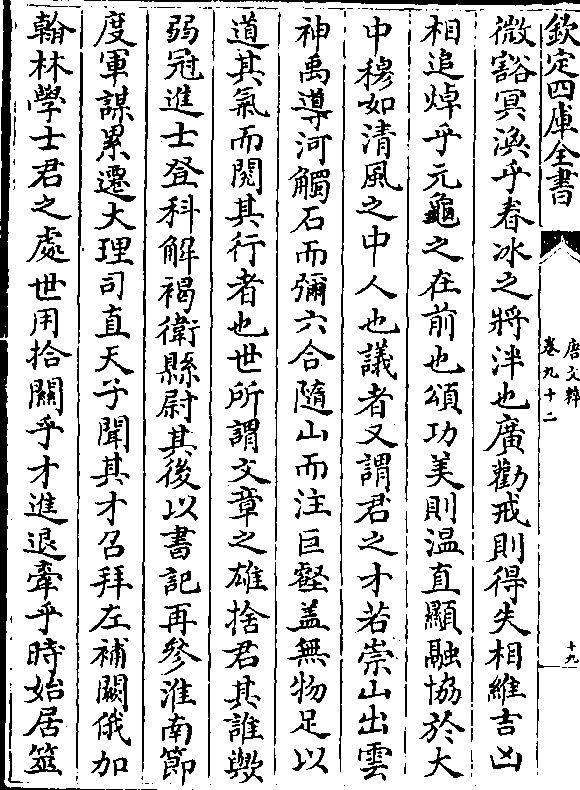 欽定四庫全書
唐文粹
卷九十二
十九
微豁冥渙乎春冰之將泮也廣勸戒則得失相維吉凶
相追焯乎元龜之在前也頌功美則温直顯融協於大
中穆如清風之中人也議者又謂君之才若崇山出雲
神禹導河觸石而彌六合隨山而注巨壑盖無物足以
道其氣而閱其行者也世所謂文章之雄捨君其誰歟
弱冠進士登科解褐衛縣尉其後以書記再參淮南節
度軍謀累遷大理司直天子聞其才召拜左補闕俄加
翰林學士君之處世用拾關乎才進退牽乎時始居筮